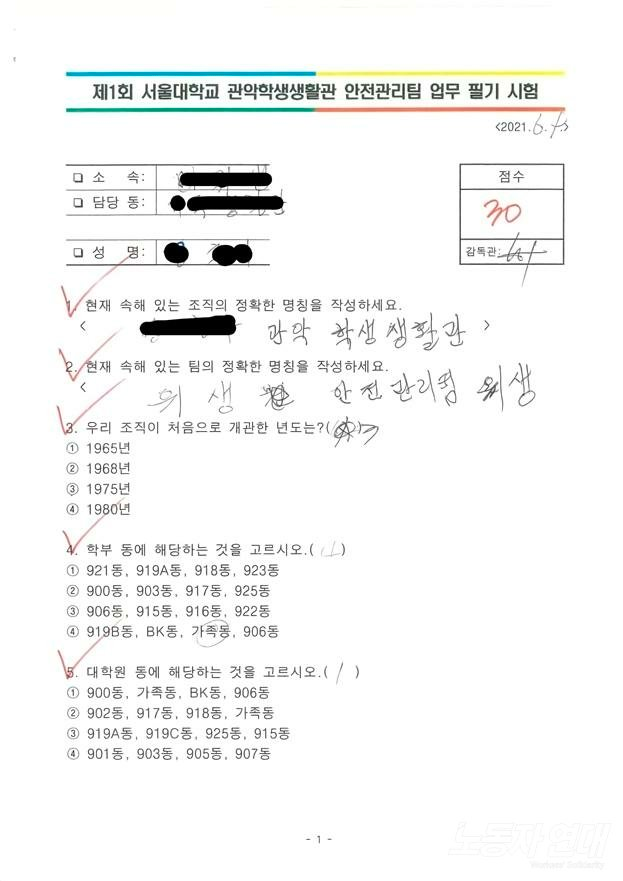 제1회 서울대학교 관악학생생활관 안전관리팀 업무 필기 시험
<2021.6.   >
❏ 소 속:
❏ 담당 동:
❏ 성 명:
점수
30
감독관:
1. 현재 속해 있는 조직의 정확한 명칭을 작성하세요.
< 관악 학생생활관 >
2. 현재 속해 있는 팀의 정확한 명칭을 작성하세요.
< 위생 안전관리팀 위생
3. 우리 조직이 처음으로 개관한 년도는?( )
① 1965년
② 1968년
③ 1975년
④ 1980년
4. 학부 동에 해당하는 것을 고르시오.( )
① 921동, 919A동, 918동, 923동
② 900동, 903동, 917동, 925동
③ 906동, 915동, 916동, 922동
④ 919B동, BK동, 가족동, 906동
5. 대학원 동에 해당하는 것을 고르시오.( / )
① 900동, 가족동, BK동, 906동
② 902동, 917동, 918동, 가족동
③ 919A동, 919C동, 925동, 915동
④ 901동, 903동, 905동, 907동
- 1 -
노동자 연대
Workers' Solidarity